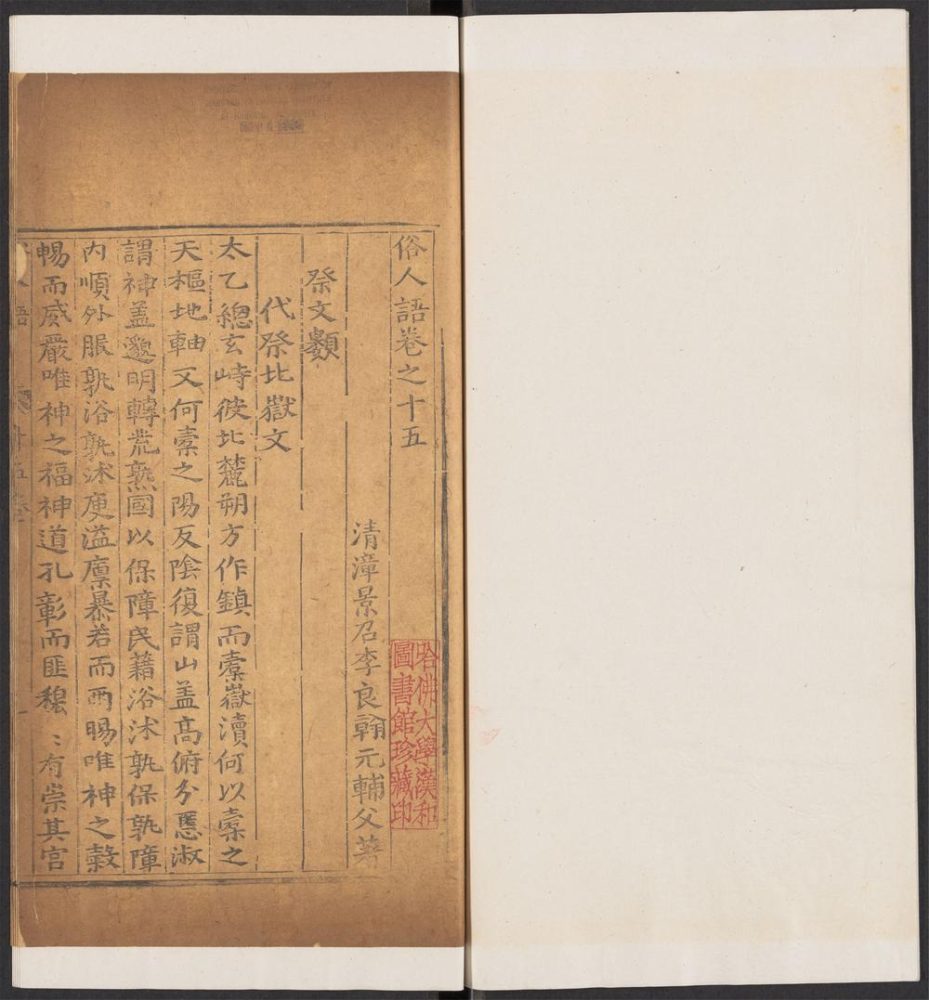 俗人語卷之十五
清漳景召李良翰元輔父著
祭文類
代祭北嶽文
太乙總玄峙彼北麓朔方作鎮而橐嶽瀆何以橐之
天樞地軸又何橐之陽反陰復謂山盖高俯分慝淑
謂神盖邈明轉荒熟國以保障民藉浴沭孰保孰障
内順外服孰浴孰沭庾溢廪暴若而雨暘唯神之穀
暢而威嚴唯神之福神道孔彰而匪穆〻有崇其宫
人語 十五卷 一
哈佛大學漢和
圖書館珍藏印